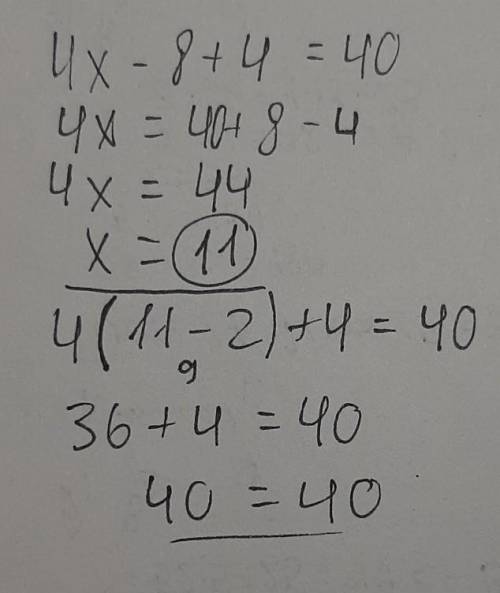 4x - 8 + 4 = 40
4x = 40 + 8 - 4
4x = 44
x = 11
4(11 - 2) + 4 = 40
9
36 + 4 = 40
40 = 40